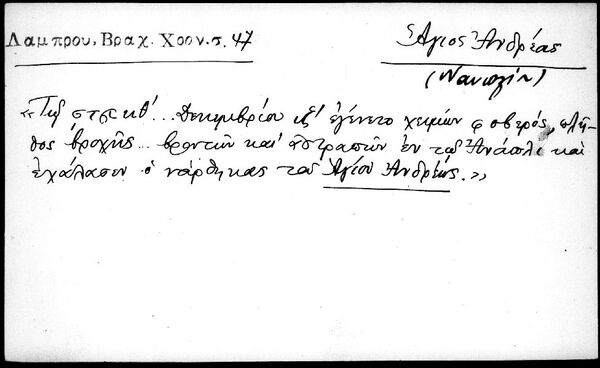 Λαμπρου, Βραχ. Χρον. σ. 47
Ἅγιος Ἀνδρέας
(Ναυπλίου)
«Τῷ ͵αφκθʹ... Δεκεμβρίου ιζʹ ἐγένετο χειμών φοβερός, πλῆ-
θος βροχῆς... βροντῶν και' ἀστραπῶν ἐν τῷ Ἀνάπλι καὶ
ἐχάλασεν ὁ νάρθηκας τοῦ Ἁγίου Ἀνδρέως.»